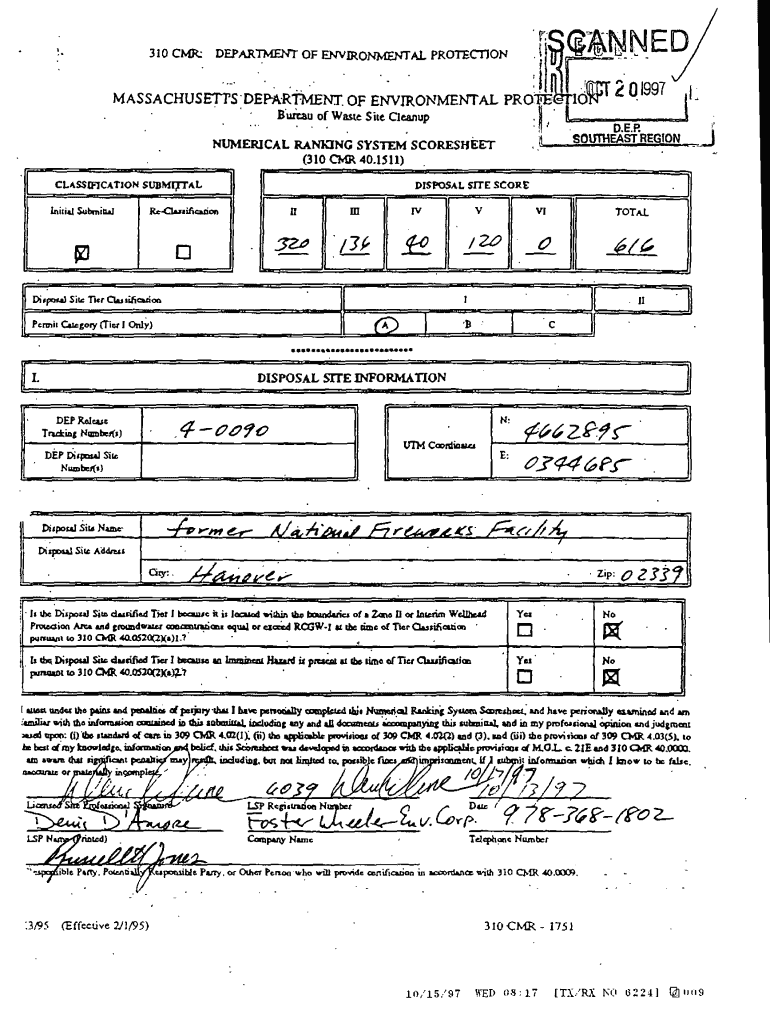 SCANNED
310 CMR: DEPARTMENT OF ENVIRONMENTAL PROTECTION
OCT 20 1997
MASSACHUSETTS DEPARTMENT OF ENVIRONMENTAL PROTECTION
Bureau of Waste Site Cleanup
D.E.P.
SOUTHEAST REGION
NUMERICAL RANKING SYSTEM SCORESHEET
(310 CMR 40.1511)
CLASSIFICATION SUBMITTAL DISPOSAL SITE SCORE
Initial Submittal Re-Classification II III IV V VI TOTAL
320 136 40 120 0 616
Disposal Site Tier Classification I II
Permit Category (Tier I Only) A B C
************************
I. DISPOSAL SITE INFORMATION
DEP Release
Tracking Number(s) 4-0090
UTM Coordinates N: 4662895
DEP Disposal Site
Number(s)
E: 0344685
Disposal Site Name former National Fireworks Facility
Disposal Site Address
City: Hanover Zip: 02339
Is the Disposal Site classified Tier I because it is located within the boundaries of a Zone II or Interim Wellhead Yes No
Protection Area and groundwater concentrations equal or exceed RCGW-1 at the time of Tier Classification
pursuant to 310 CMR 40.0520(2)(a)1.?
Is the Disposal Site classified Tier I because an Imminent Hazard is present at the time of Tier Classification Yes No
pursuant to 310 CMR 40.0520(2)(a)2.?
I attest under the pains and penalties of perjury that I have personally completed this Numerical Ranking System Scoresheet, and have personally examined and am
familiar with the information contained in this submittal, including any and all documents accompanying this submittal, and in my professional opinion and judgment
based upon: (i) the standard of care in 309 CMR 4.02(1), (ii) the applicable provisions of 309 CMR 4.02(2) and (3), and (iii) the provisions of 309 CMR 4.03(5), to
the best of my knowledge, information and belief, this Scoresheet was developed in accordance with the applicable provisions of M.G.L. c. 21E and 310 CMR 40.0000.
am aware that significant penalties may result, including, but not limited to, possible fines and imprisonment, if I submit information which I know to be false,
inaccurate or materially incomplete.
6039 10/17/97
10/13/97
Licensed Site Professional Signature LSP Registration Number Date
Denis D'Amore Foster Wheeler Env. Corp. 978-368-1802
LSP Name (Printed) Company Name Telephone Number
Russell Jones
Responsible Party, Potentially Responsible Party, or Other Person who will provide certification in accordance with 310 CMR 40.0009.
3/95 (Effective 2/1/95) 310 CMR - 1751
10/15/97 WED 08:17 [TX/RX NO 6224] 009